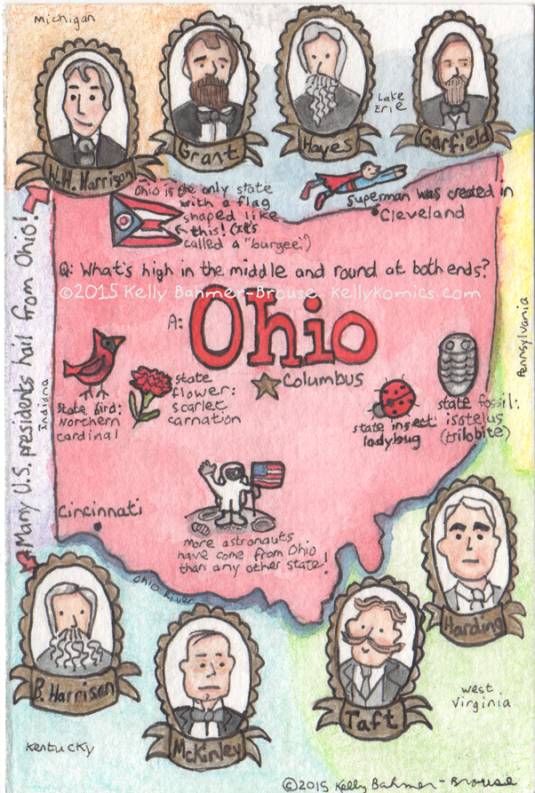 Michigan
W.H. Harrison
Grant
Hayes
Lake
Erie
Garfield
Many U.S. presidents hail from Ohio!
Ohio is the only state
with a flag
shaped like
this! (It's
called a "burgee.")
Superman was created in
Cleveland
Q: What's high in the middle and round at both ends?
©2015 Kelly Bahmer-Brouse, kellykomics.com
A: Ohio
Columbus
State bird:
Northern
cardinal
state
flower:
scarlet
carnation
state insect:
ladybug
state fossil:
isotelus
(trilobite)
Indiana
Pennsylvania
Cincinnati
More astronauts
have come from Ohio
than any other state!
Ohio River
B. Harrison
McKinley
Taft
Harding
West
Virginia
Kentucky
©2015 Kelly Bahmer-Brouse